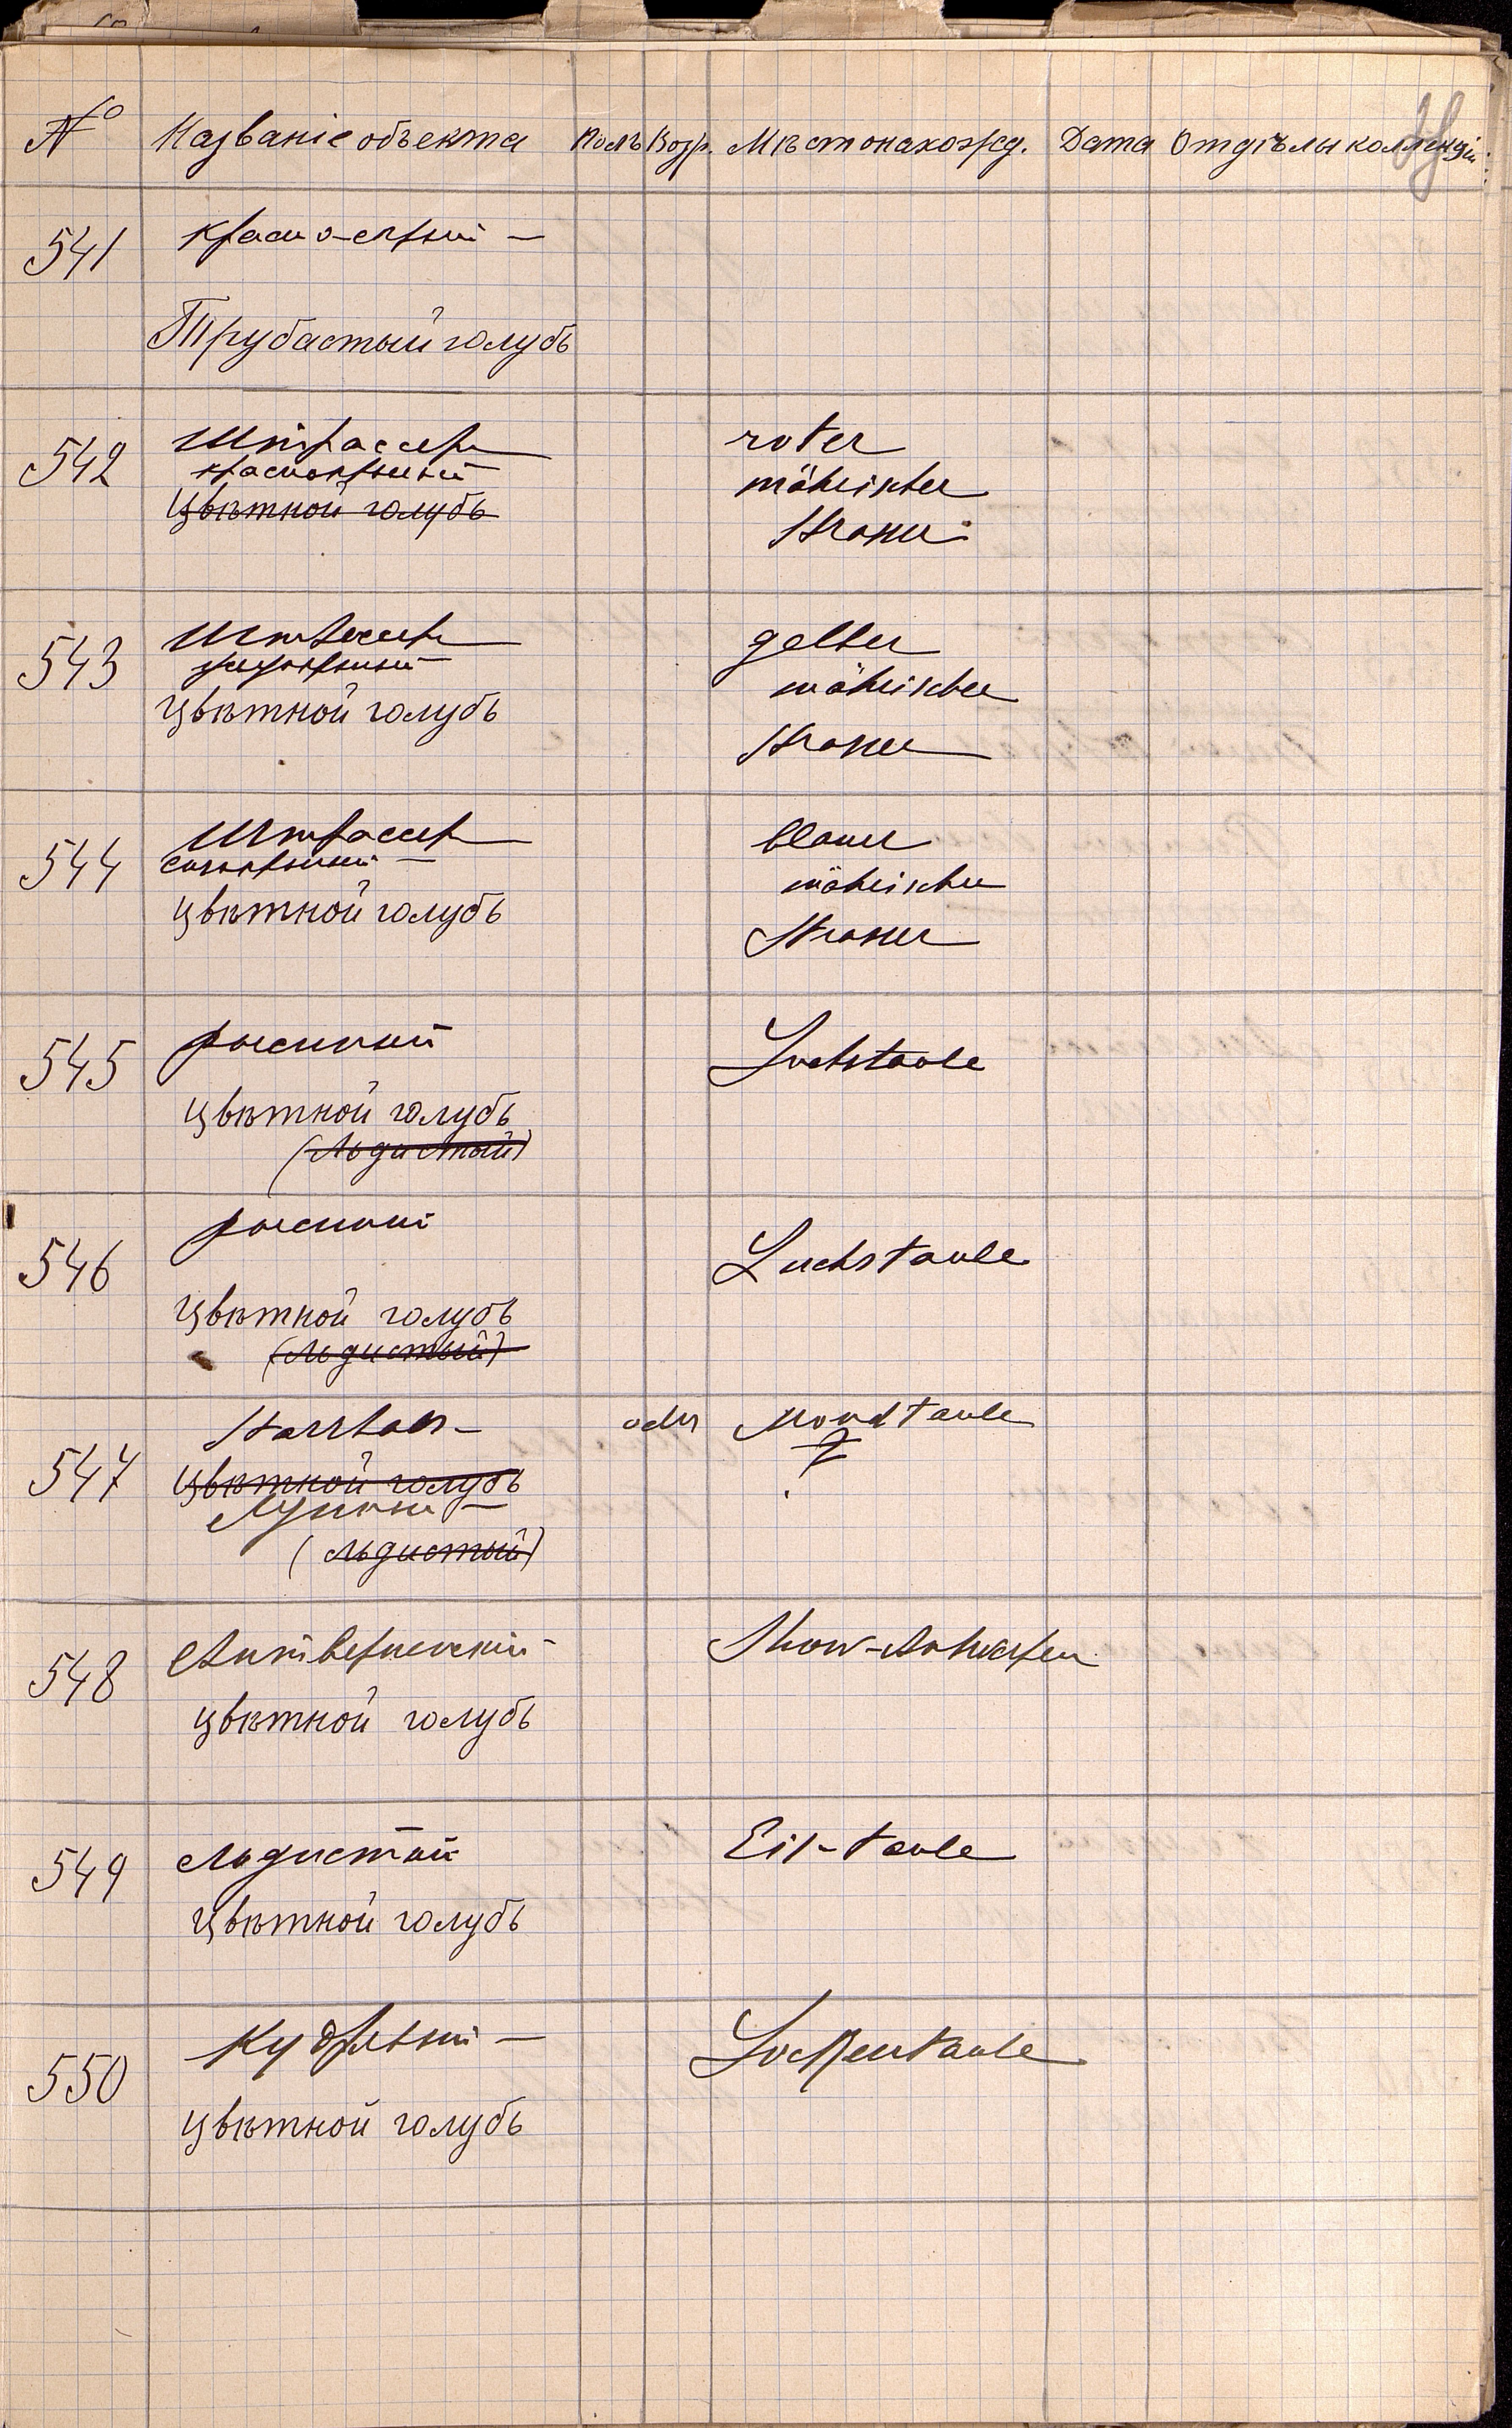 № Названіе объекта Полъ Возр. Мѣстонахожд. Дата Отдѣлы коллекціи
541
Трубастый голубь
542 Штрассер roter
краснокрылый mährischer
Цвѣтной голубь Strasser
543 Штрассер gelber
mährischer
Цвѣтной голубь Strasser
544 Штрассер blauer
mährischer
Цвѣтной голубь Strasser
545 рысистый Luchstaube
Цвѣтной голубь
(Льдистый)
546 рысистый Luchstaube
Цвѣтной голубь
(Льдистый)
547 Starrhals- oder Mondtaube
?
Цвѣтной голубь
(Льдистый)
548 Антверпенскій Show-Antwerpen
Цвѣтной голубь
549 Льдистый Eis-taube
Цвѣтной голубь
550 Кудрявый Lockentaube
Цвѣтной голубь